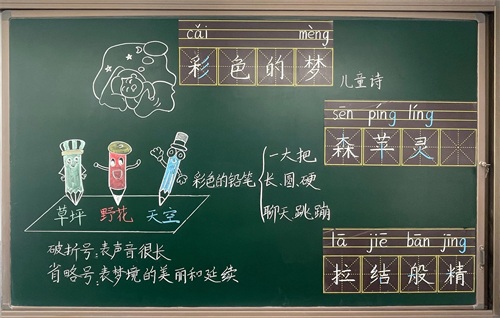 cǎi mèng
彩色的梦
儿童诗
sēn píng líng
森苹灵
草坪 野花 天空
彩色的铅笔
一大把
长、圆、硬
聊天、跳蹦
破折号:表声音很长
省略号:表梦境的美丽和延续
lā jiē bān jīng
拉结般精